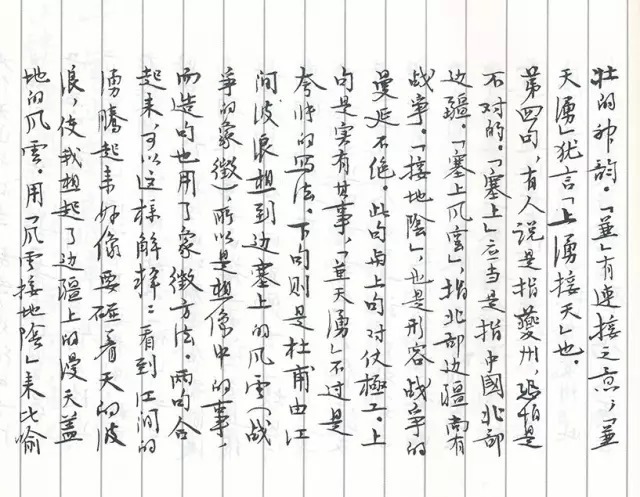 壯的神韵。「兼」有連接之意，「兼
天湧」犹言「上湧接天」也。
第四句，有人说是指夔州，恐怕是
不对的。「塞上」应当是指中國北部
边疆。「塞上风雲」，指北部边疆尚有
战事。「接地陰」，也是形容战爭的
曼延不绝。此句与上句对仗極工。上
句是实有其事，「兼天湧」不过是
夸张的写法。下句则是杜甫由江
间波浪想到边塞上的风雲（战
爭的象徵），所以是想像中的事，
而造句也用了象徵方法。两句合
起来，可以这样解释：看到江间的
湧騰起来好像要碰着天的波
浪，使我想起了边疆上的漫天蓋
地的风雲。用「风雲接地陰」来比喻